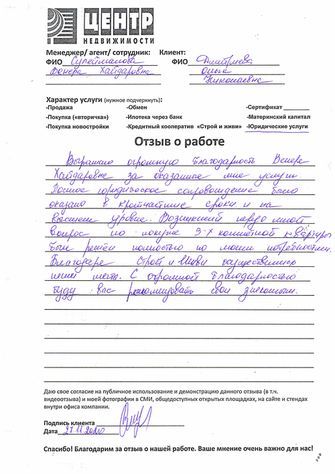 ЦЕНТР
НЕДВИЖИМОСТИ
Менеджер/ агент/ сотрудник: Клиент:
ФИО Сулейманова ФИО Дмитриева
Венера Хайдаровна Ольга
Николаевна
Характер услуги (нужное подчеркнуть):
-Продажа -Обмен -Сертификат
-Покупка («вторичка») -Ипотека через банк -Материнский капитал
-Покупка новостройки -Кредитный кооператив «Строй и живи» -Юридические услуги
Отзыв о работе
Выражаю огромную благодарность Венере
Хайдаровне за оказанные мне услуги.
юридическое сопровождение было
оказано в кратчайшие сроки и на
высшем уровне. Возникший передо мной
вопрос по покупке 3-х комнатной квартиры
был решён полностью по моим потребностям.
Благодаря Строй и Живи
мечта. С огромной благодарностью
буду Вас рекомендовать свои знакомым.
Даю свое согласие на публичное использование и демонстрацию данного отзыва (в т.ч.
видеоотзыва) и моей фотографии в СМИ, общедоступных открытых площадках, на сайте и стендах
внутри офиса компании.
Подпись клиента
Дата 27.11.2020
Спасибо! Благодарим за отзыв о нашей работе. Ваше мнение очень важно для нас!